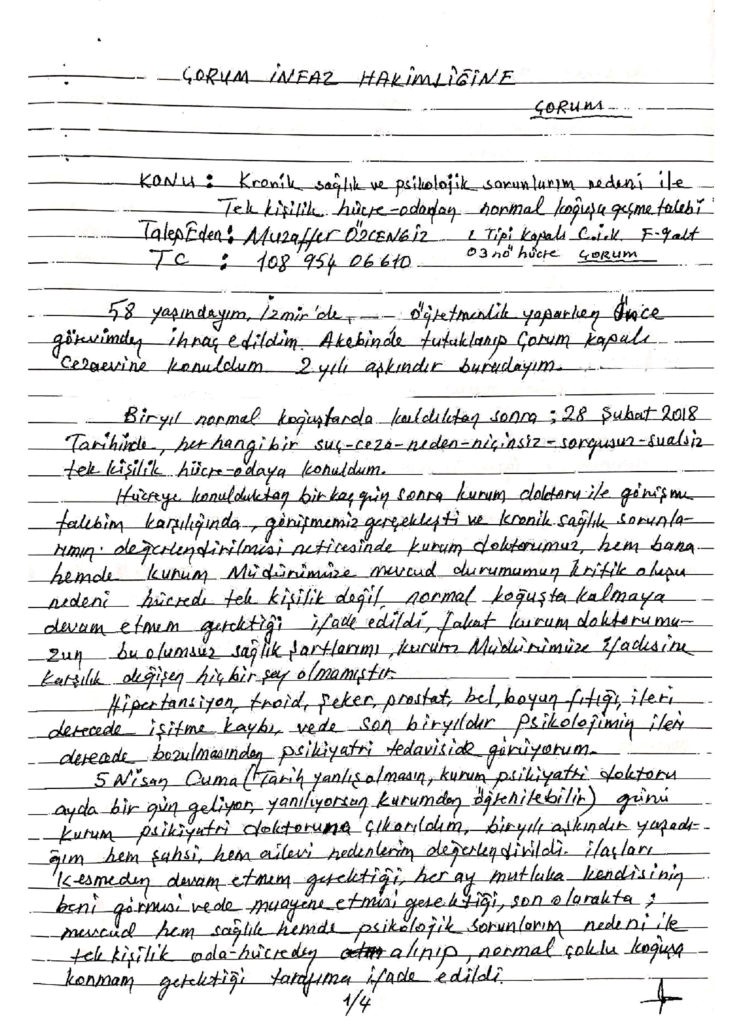 ÇORUM İNFAZ HAKİMLİĞİNE
ÇORUM
KONU : Kronik sağlık ve psikolojik sorunlarım nedeni ile
Tek kişilik hücre-odadan normal koğuşa geçme talebi
Talep Eden : Muzaffer ÖZCENGİZ L Tipi Kapalı C.i.k. F-9alt
TC : 108 954 06610 03 nö hücre ÇORUM
58 yaşındayım, İzmir'de, öğretmenlik yaparken önce
görevimden ihraç edildim. Akebinde tutuklanıp Çorum kapalı
Cezaevine konuldum. 2 yılı aşkındır buradayım.
Biryıl normal koğuşlarda kaldıktan sonra ; 28 Şubat 2018
Tarihinde, her hangi bir suç-ceza-neden-niçinsiz-sorgusuz-sualsiz
tek kişilik hücre-odaya konuldum.
Hücreye konulduktan bir kaç gün sonra kurum doktoru ile görüşme
talebim karşılığında, görüşmemiz gerçekleşti ve kronik sağlık sorunla-
rımın değerlendirilmesi neticesinde kurum doktorumuz, hem bana
hemde kurum Müdürümüze mevcud durumumun kritik oluşu
nedeni hücrede tek kişilik değil, normal koğuşta kalmaya
devam etmem gerektiği ifade edildi, fakat kurum doktorumu-
zun bu olumsuz sağlık şartlarımı, kurum Müdürümüze ifadesine
karşılık değişen hiç bir şey olmamıştır.
Hipertansiyon, troid, şeker, prostat, bel, boyun fıtığı, ileri
derecede işitme kaybı, vede son biryıldır psikolojimin ileri
derecede bozulmasından psikiyatri tedaviside görüyorum.
5 Nisan Cuma (Tarih yanlış olmasın, kurum psikiyatri doktoru
ayda bir gün geliyor, yanılıyorsam kurumdan öğrenilebilir) günü
kurum psikiyatri doktoruna çıkarıldım, biryılı aşkındır yaşadı-
ğım hem şahsi, hem ailevi nedenlerim değerlendirildi. ilaçları
kesmeden devam etmem gerektiği, her ay mutlaka kendisinin
beni görmesi vede muayene etmesi gerektiği, son olarakta ;
mevcud hem sağlık hemde psikolojik sorunlarım nedeni ile
tek kişilik oda-hücreden alınıp, normal çoklu koğuşa
konmam gerektiği tarafıma ifade edildi.
1/4